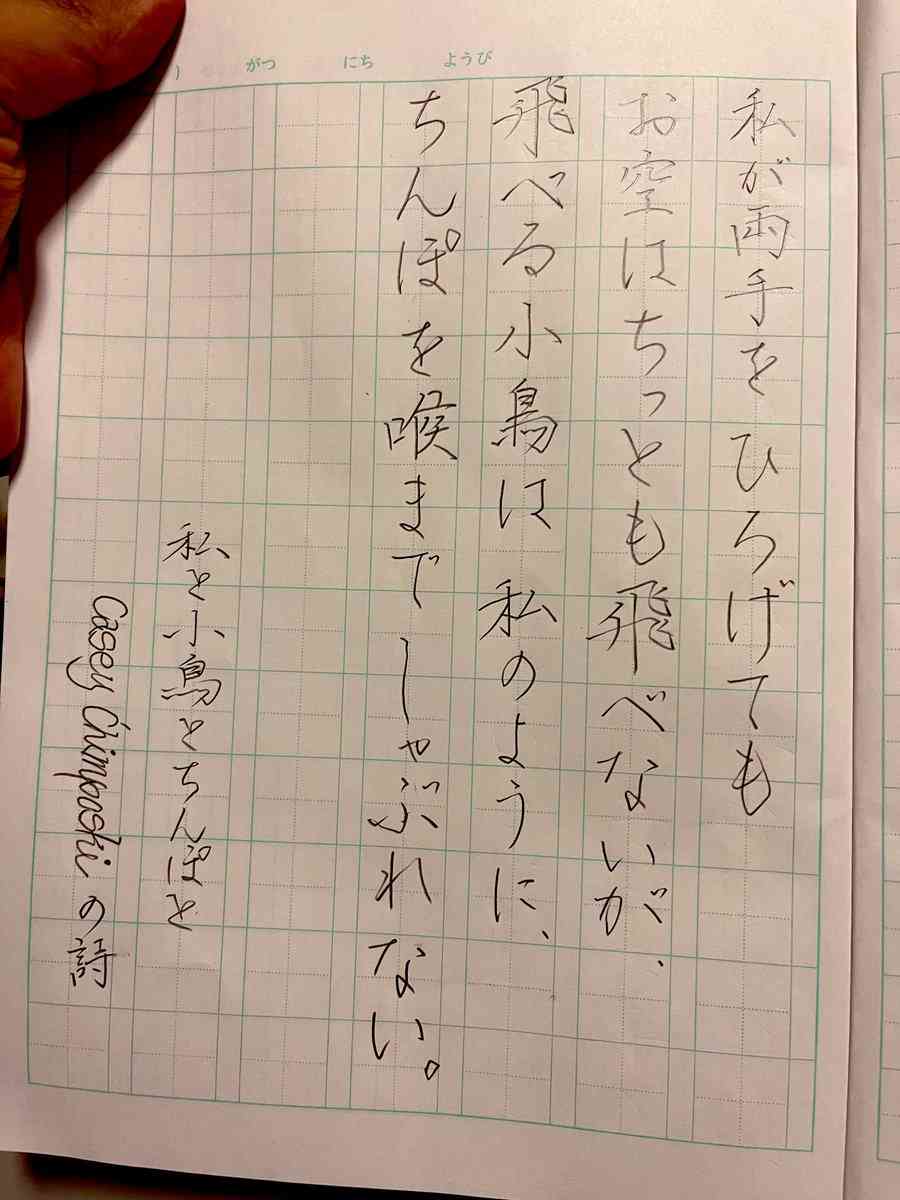 がつ にち ようび
私が両手をひろげても
お空はちっとも飛べないが、
飛べる小鳥は私のように、
ちんぽを喉までしゃぶれない。
私と小鳥とちんぽと
Casey Chimposki の詩